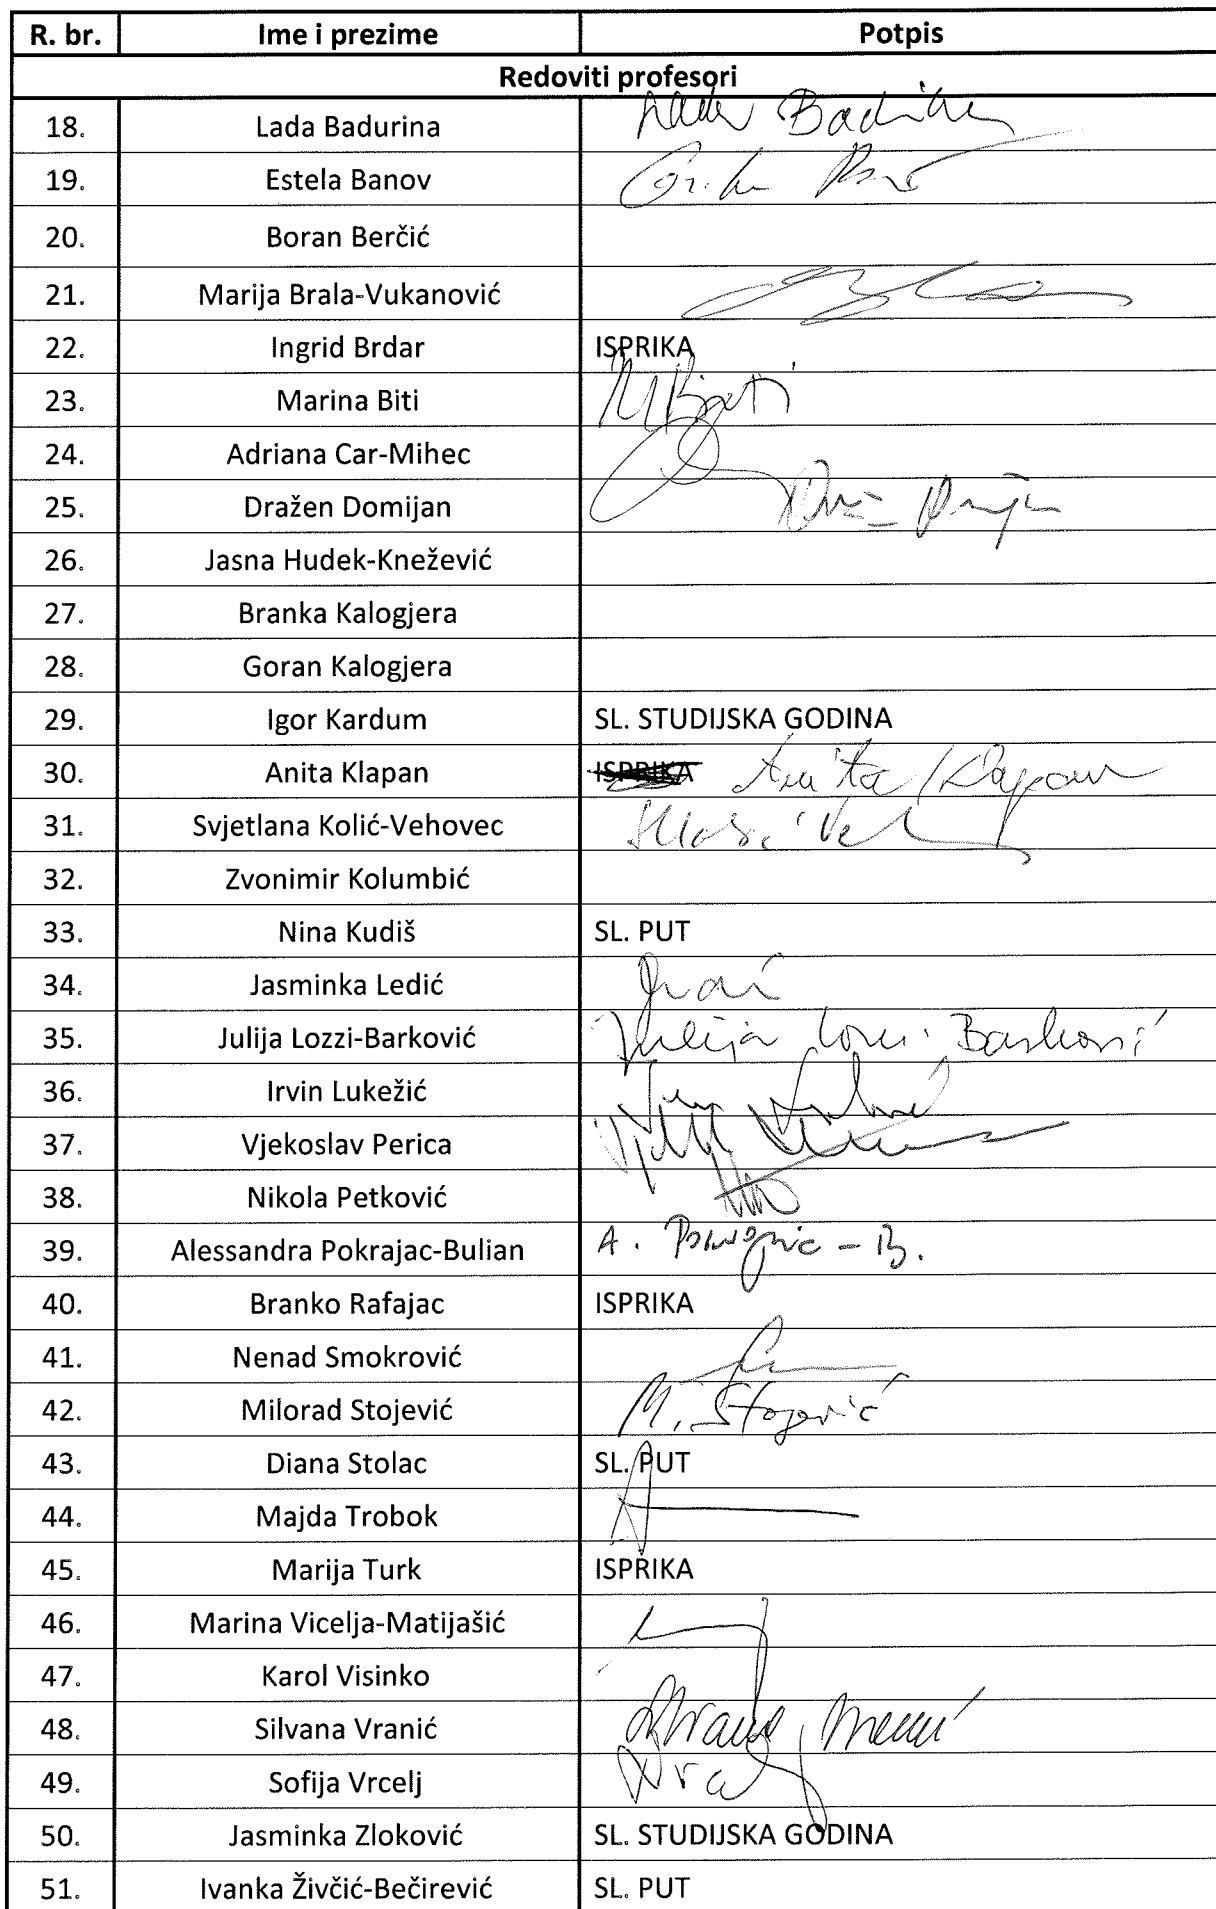 R. br. Ime i prezime Potpis
Redoviti profesori
18. Lada Badurina
19. Estela Banov
20. Boran Berčić
21. Marija Brala-Vukanović
22. Ingrid Brdar ISPRIKA
23. Marina Biti
24. Adriana Car-Mihec
25. Dražen Domijan
26. Jasna Hudek-Knežević
27. Branka Kalogjera
28. Goran Kalogjera
29. Igor Kardum SL. STUDIJSKA GODINA
30. Anita Klapan ISPRIKA Anita Klapan
31. Svjetlana Kolić-Vehovec
32. Zvonimir Kolumbić
33. Nina Kudiš SL. PUT
34. Jasminka Ledić
35. Julija Lozzi-Barković Julija Lozzi-Barković
36. Irvin Lukežić
37. Vjekoslav Perica
38. Nikola Petković
39. Alessandra Pokrajac-Bulian
40. Branko Rafajac ISPRIKA
41. Nenad Smokrović
42. Milorad Stojević M. Stojević
43. Diana Stolac SL. PUT
44. Majda Trobok
45. Marija Turk ISPRIKA
46. Marina Vicelja-Matijašić
47. Karol Visinko
48. Silvana Vranić
49. Sofija Vrcelj
50. Jasminka Zloković SL. STUDIJSKA GODINA
51. Ivanka Živčić-Bečirević SL. PUT